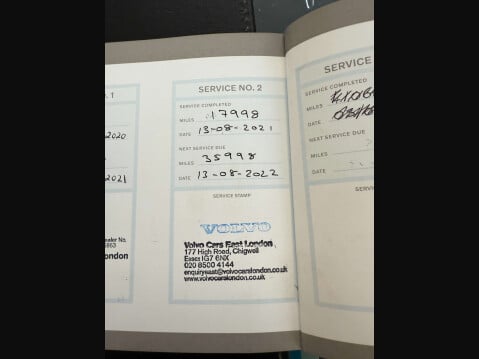 . 1
2020
2021
ealer No.
London
SERVICE NO. 2
SERVICE COMPLETED
MILES 17998
DATE 13-08-2021
NEXT SERVICE DUE
MILES 35998
DATE 13-08-2022
SERVICE STAMP
VOLVO
Volvo Cars East London
177 High Road, Chigwell
Essex IG7 6NX
020 8500 4144
enquiryeast@volvocarslondon.co.uk
www.volvocarslondon.co.uk
SERVICE
SERVICE COMPLETED
MILES
DATE
NEXT SERVICE DUE
MILES
DATE
SERVI